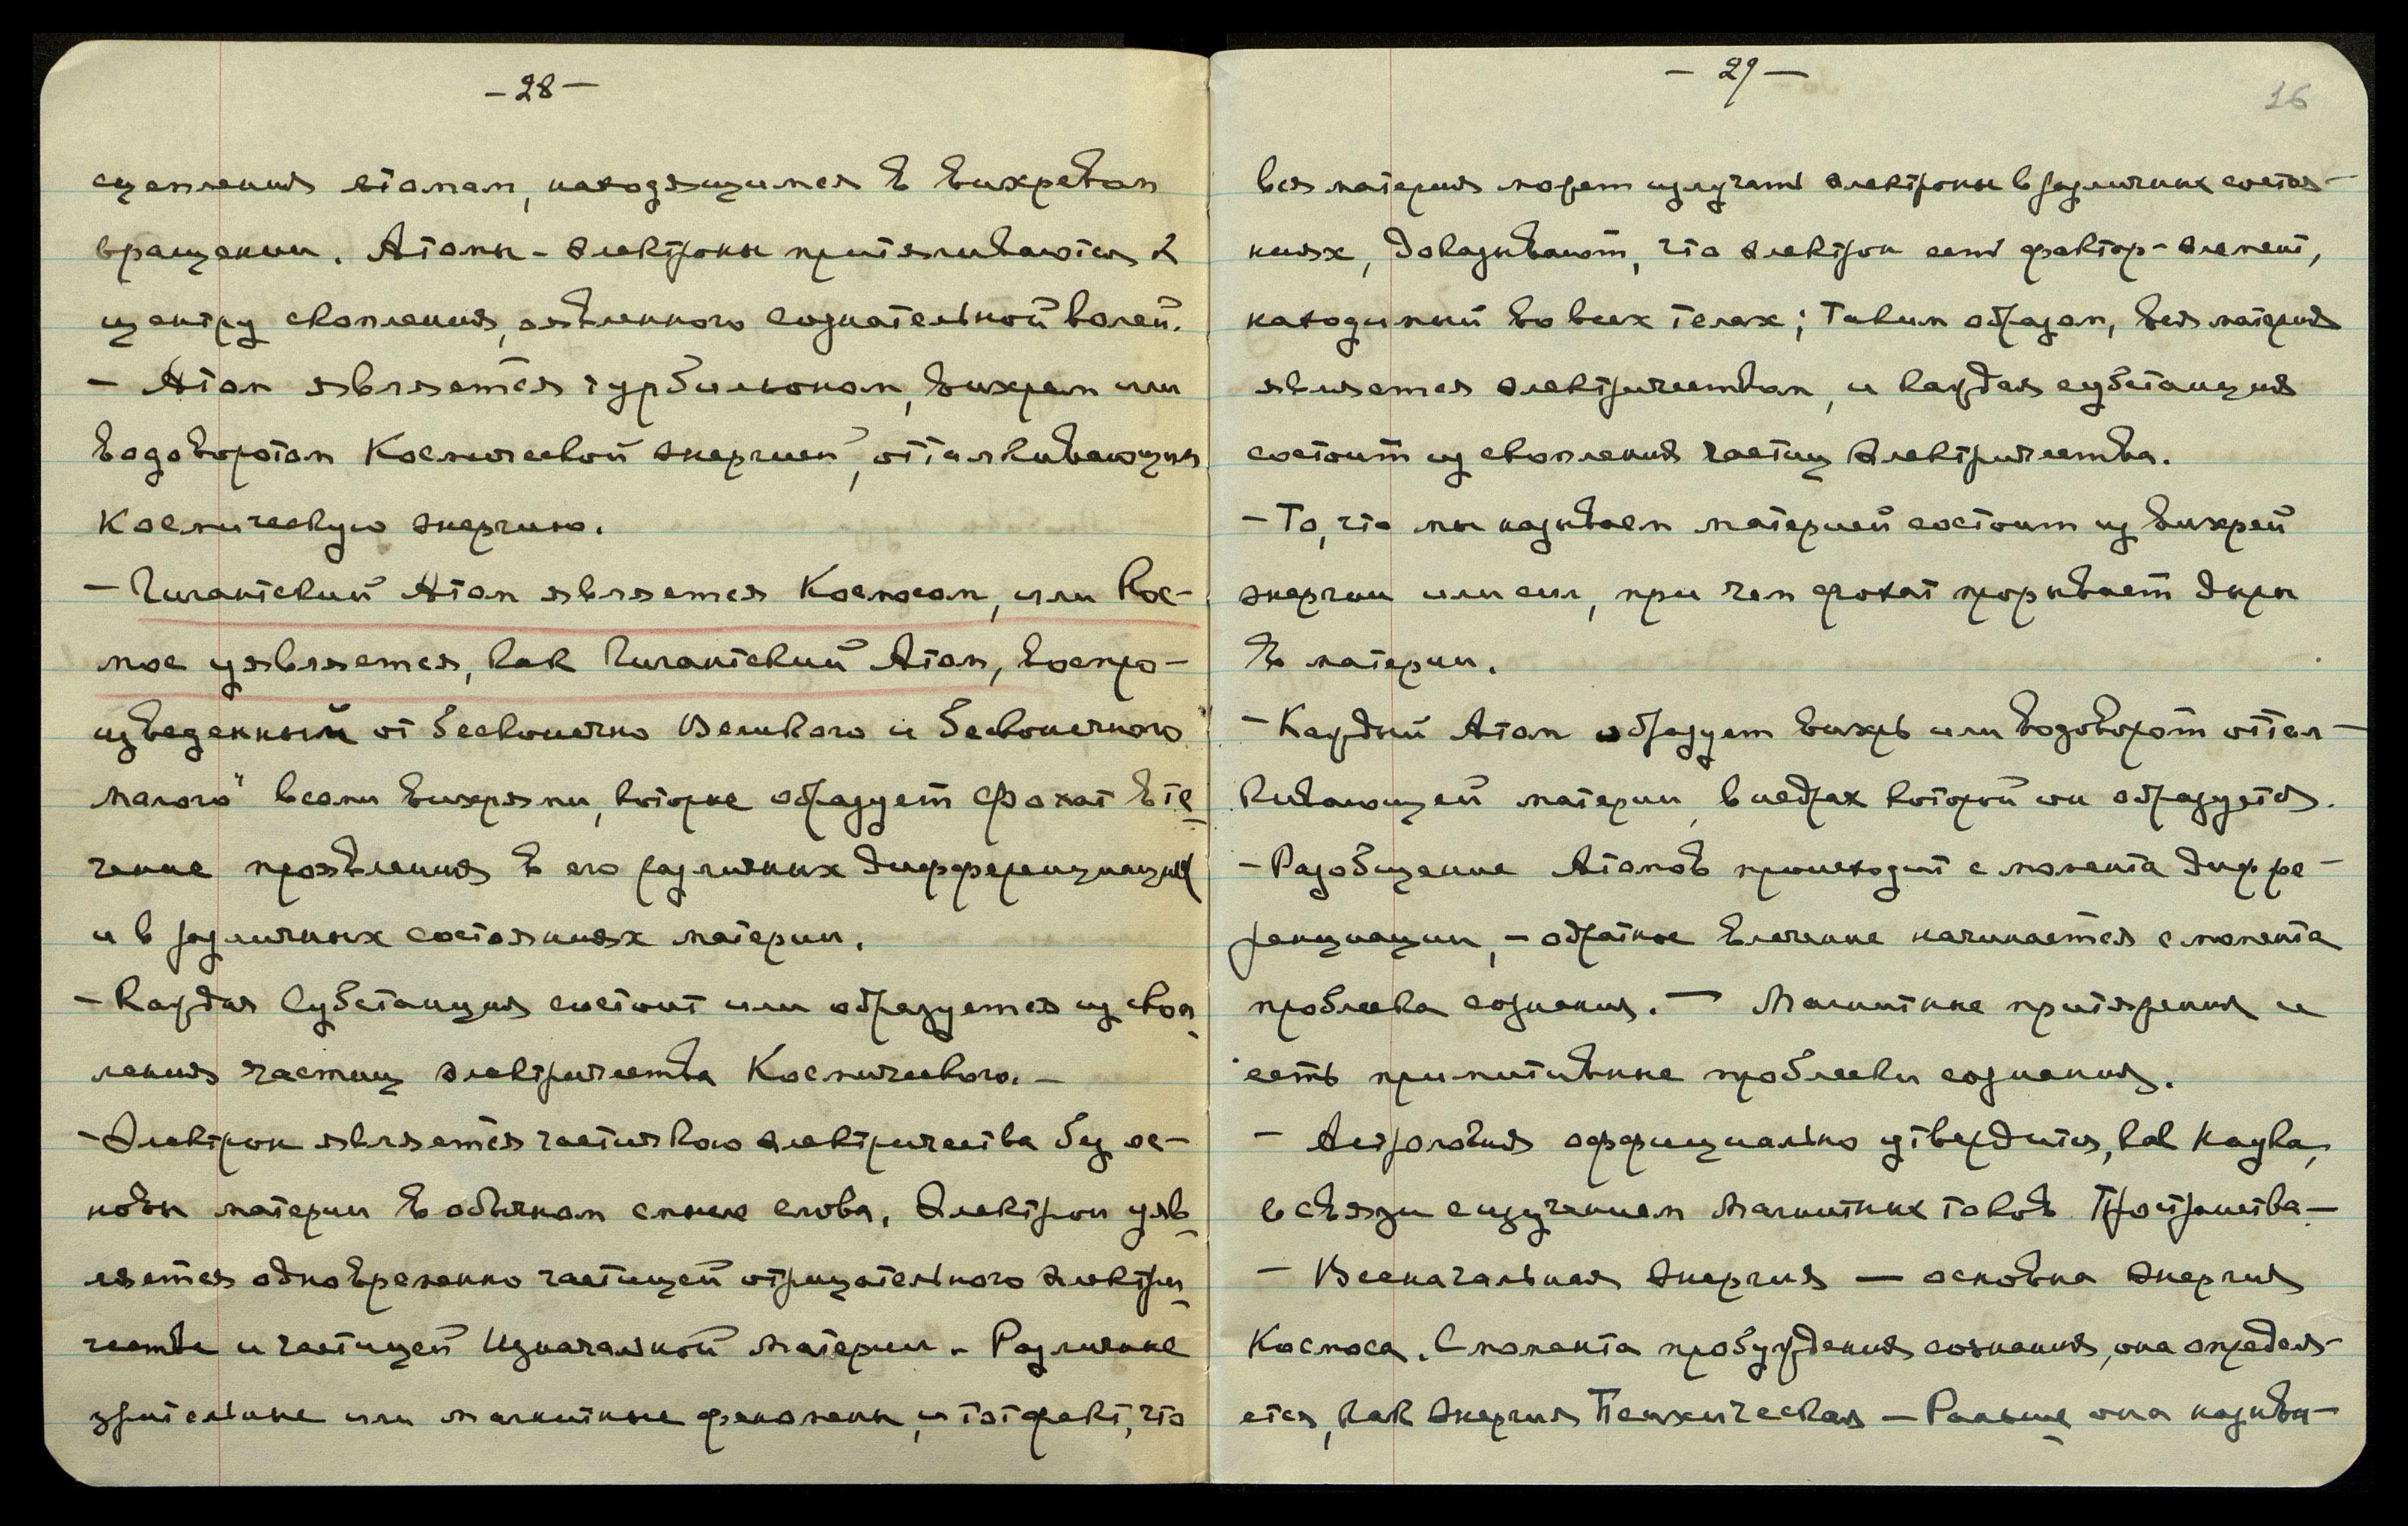 - 28 -
сцепления атомам, находящимся в вихревом
вращении. Атомы - электроны притягиваются к
центру скопления, явленного сознательной волей.
- Атом является турбильоном, вихрем или
водоворотом Космической энергией, отталкивающим
Космическую энергию.
- Гигантский Атом является Космосом, или Кос-
мос уявляется, как Гигантский Атом, воспро-
изведенный от бесконечно Великого и бесконечного
малого" всеми вихрями, которые образует Фохат в те
чение проявления в его различных дифференциациях
и в различных состояниях материи.
- Каждая Субстанция состоит или образуется из скоп
ления частиц электричества Космического. -
- Электрон является частичкою электричества без ос-
новы материи в обычном смысле слова. Электрон уяв
ляется одновременно частицей отрицательного электри
чества и частицей Изначальной Материи. - Различные
зрительные или магнитные феномены, и тот факт, что
- 29 -
16
вся материя может излучать электроны в различных состоя-
ниях, доказывают, что электрон есть фактор-элемент,
находимый во всех телах; Таким образом, вся материя
является электричеством, и каждая субстанция
состоит из скопления частиц электричества.
- То, что мы называем материей состоит из вихрей
энергии или сил, при чем фохат прорывает дыры
в материи.
- Каждый Атом образует вихрь или водоворот оттал-
кивающей материи, в недрах которой он образуется.
- Разобщение Атомов происходит с момента диффе-
ренциации, - обратное влечение начинается с момента
проблеска сознания. - Магнитные притяжения и
есть примитивные проблески сознания.
- Астрология оффициально утвердится, как наука,
в связи с изучением Магнитных токов Пространства -
- Всеначальная энергия — основна энергия
Космоса. С момента пробуждения сознания, она определя-
ется, как Энергия Психическая - Раньше она называ-